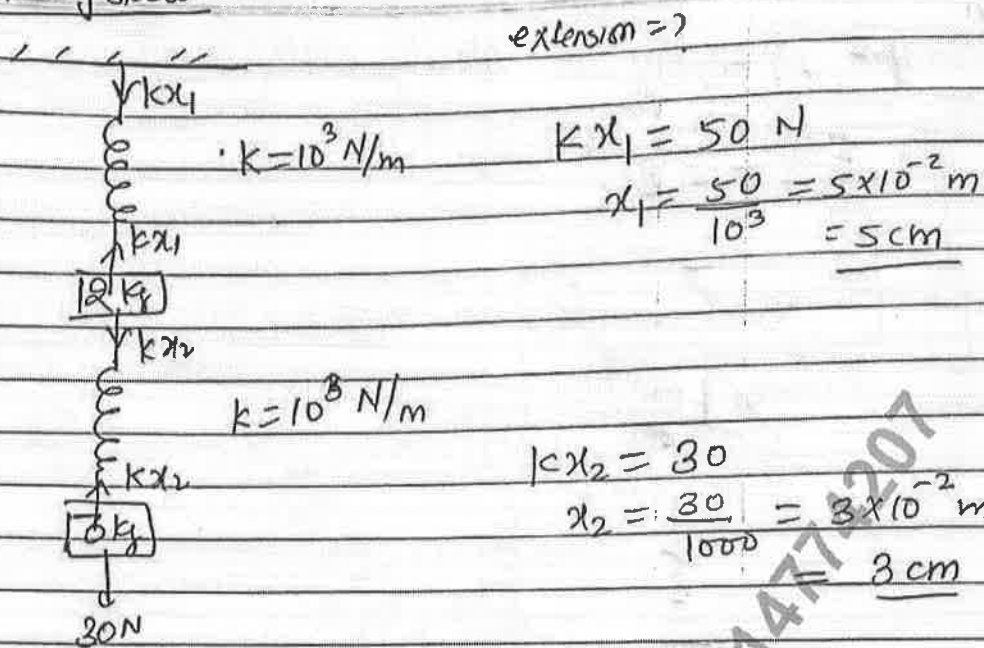 extension = ?
kx₁
k = 10³ N/m
Kx₁ = 50 N
x₁ = 50/10³ = 5×10⁻² m
= 5 cm
kx₁
2 kg
kx₂
k = 10³ N/m
kx₂ = 30
kx₂
x₂ = 30/1000 = 3×10⁻² m
= 3 cm
3 kg
30N
4774207